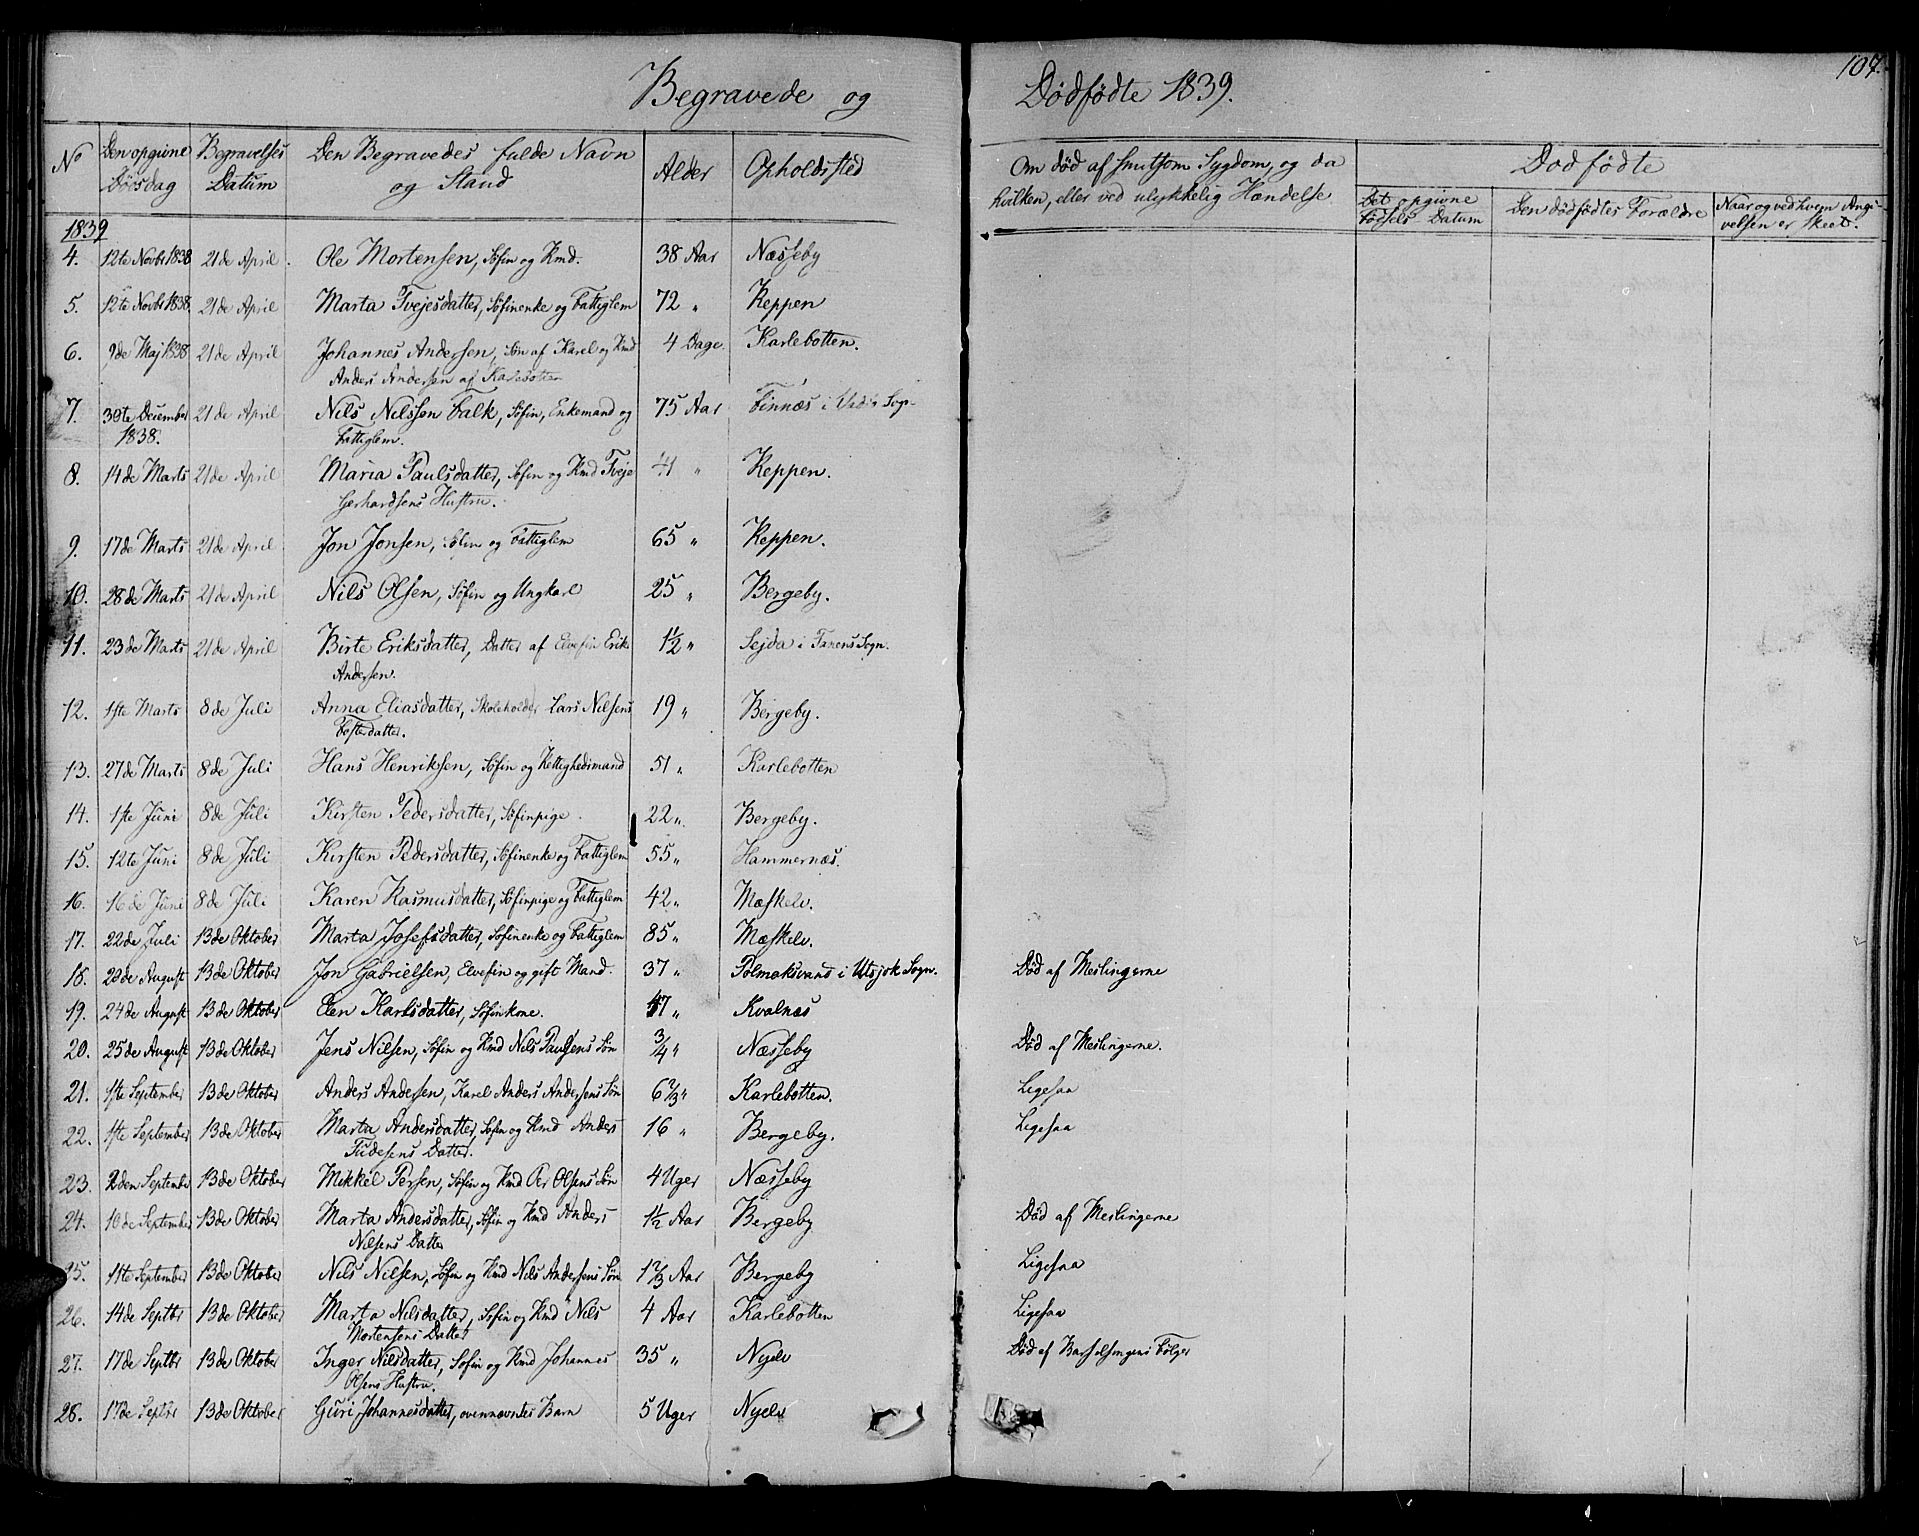 Begravede og Dødfødte 1839.
107.
No | Den opgivne Dødsdag | Begravelses Datum | Den Begravedes fulde Navn og Stand | Alder | Opholdssted | Om død af smitsom Sygdom, og da hvilken, eller ved ulykkelig Hændelse | Dødfødte
Det opgivne Fødsels Datum | Den dødfødtes Forældre | Naar og ved hvem Angivelsen er skeet.
1839
4. 12te Novbr 1838 21de April. Ole Mortensen, Søfin og Kmd. 38 Aar Næsseby
5. 12te Novbr 1838. 21de April Marta Tvejesdatter, Søfinenke og Fattiglem 72 " Keppen
6. 9de Maj 1838. 21de April Johannes Andersen, Søn af Karel og Kmd 4 Dage. Karlebotten.
Anders Andersen af Karlebotten
7. 30te December 21de April Nils Nilssen Falk, Søfin, Enkemand og 75 Aar Finnæs i Sogn
1838. Fattiglem.
8. 14de Marts 21de April Maria Paulsdatter, Søfin og Kmd Tveje 41 " Keppen.
Gerhardsens Hustru.
9. 17de Marts 21de April Jon Jonsen, Søfin og Fattiglem 65 " Keppen.
10. 28de Marts 21de April Nils Olsen, Søfin og Ungkarl 25 " Bergeby.
11. 23de Marts 21de April Birte Eriksdatter, Datter af Elvefin Erik 1½ " Sejda i Tanens Sogn.
Andersen.
12. 1ste Marts 8de Juli Anna Eliasdatter, Skoleholder Lars Nilsens 19 " Bergeby.
Fosterdatter.
13. 27de Marts 8de Juli Hans Henriksen, Søfin og Rettighedsmand 51 " Karlebotten
14. 1ste Juni 8de Juli Kirsten Pedersdatter, Søfinpige. 22 " Bergeby.
15. 12te Juni 8de Juli Kirsten Pedersdatter, Søfinenke og Fattiglem 55 " Hammernæs.
16. 16de Juni 8de Juli Karen Rasmusdatter, Søfinpige og Fattiglem 42 " Mæskelv.
17. 22de Juli 13de Oktober Marta Josefsdatter, Søfinenke og Fattiglem 85 " Mæskelv.
18. 20de August 13de Oktober Jon Gabrielsen, Elvefin og gift Mand. 37 " Polmaksvand i Utsjok Sogn. Død af Meslingerne
19. 24de August 13de Oktober Elen Karlsdatter, Søfinkone. 47 " Kvalnæs
20. 25de August 13de Oktober Jens Nilsen, Søfin og Kmd Nils Paulsens Søn ¾ " Næsseby Død af Meslingerne.
21. 1ste September 13de Oktober Anders Andersen, Karel Anders Andersens Søn 6⅔ " Karlebotten. Ligesaa
22. 1ste September 13de Oktober Marta Andersdatter, Søfin og Kmd Anders 16 " Bergeby. Ligesaa
Tudesens Datter.
23. 2den September 13de Oktober Mikkel Persen, Søfin og Kmd Per Olsens Søn 4 Uger Næsseby
24. 10de September 13de Oktober Marta Andersdatter, Søfin og Kmd Anders 1½ Aar Bergeby Død af Meslingerne
Nilsens Datter
25. 11te September 13de Oktober Nils Nilsen, Søfin og Kmd Nils Andersens Søn 1⅔ Aar Bergeby Ligesaa
26. 14de Septbr 13de Oktober Marta Nilsdatter, Søfin og Kmd Nils 4 Aar Karlebotten Ligesaa
Mortensens Datter
27. 17de Septbr 13de Oktober Inger Nilsdatter, Søfin og Kmd Johannes 35 " Nyelv Død af Barselsengens Følger
Olsens Hustru.
28. 17de Septbr 13de Oktober Guri Johannesdatter, ovennævntes Barn 5 Uger Nyelv